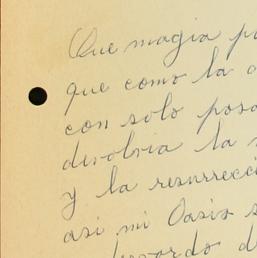 Que magia p
que como la a
con solo posa
devolvia la
y la resurrecci
asi mi Oasis s